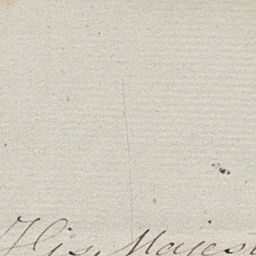 His Majest